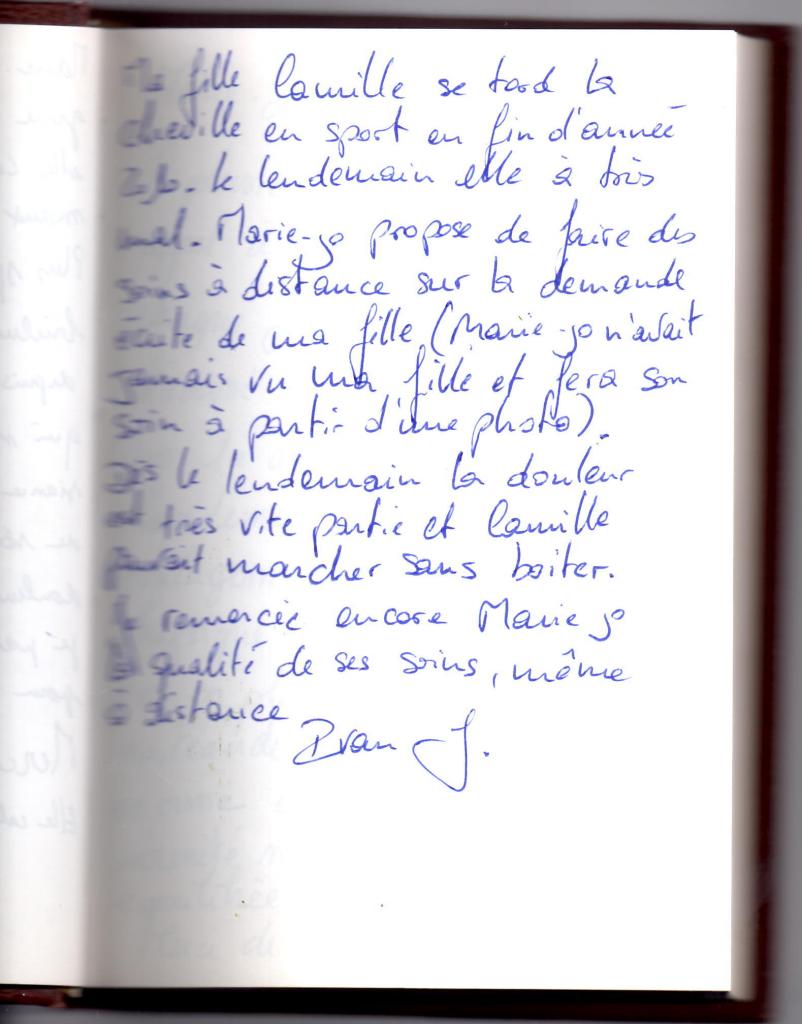 Ma fille Camille se tord la
cheville en sport en fin d'année
le lendemain elle à très
mal. Marie-jo propose de faire des
soins à distance sur la demande
écrite de ma fille (Marie-jo n'avait
jamais vu ma fille et fera son
soin à partir d'une photo).
Dès le lendemain la douleur
est très vite partie et Camille
pouvait marcher sans boiter.
Je remercie encore Marie jo
qualité de ses soins, même
à distance
J.